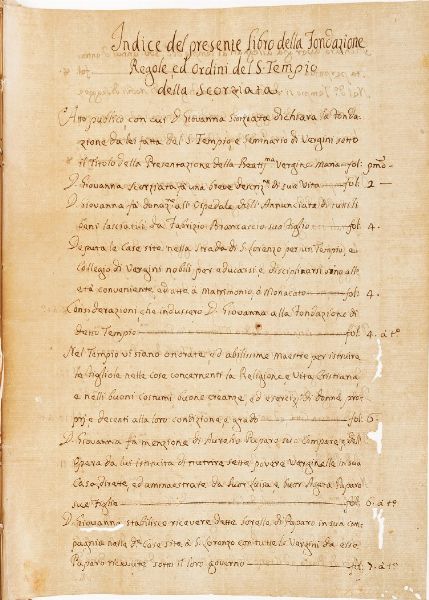 Indice del presente libro della Fondazione
Regole ed Ordini del S. Tempio
della Scorziata
Atto publico con cui D. Giovanna Scorziata dichiara la fonda-
zione da lei fatta del S. Tempio e Seminario di Vergini sotto
il Titolo della Presentazione della Beatissma Vergine Maria fol: pmo
D. Giovanna Scorziata fà una breve descrizne di sua Vita fol: 2
D. Giovanna fà donazne all' Ospedale dell' Annunciata di tutti li
beni lasciatili da Fabrizio Brancaccio suo figlio fol. 4.
Deputa le Case site nella Strada di S. Lorenzo per un Tempio, e
Collegio di Vergini nobili, per educarsi, e disciplinarsi sino all'
età conveniente ed atte à Matrimonio, ò Monacato fol. 4.
Considerazioni che indussero D. Giovanna alla Fondazione di
detto Tempio fol. 4. à to
Nel Tempio vi siano onorate ed abilissime Maestre per istruire
le figliole nelle Cose concernenti la Religione, e Vita Cristiana
e nelli buoni costumi, buone creanze, ed esercizi di donne, pro-
prj e decenti alla loro condizione, e grado fol. 6
D. Giovanna fà menzione di Aurelio Paparo suo Compare, e dell'
Opera da lui istituita di nutrire sette povere Verginelle in sua
Casa, dirette, ed ammaestrate da Suor Luisa, e Suor Agata Paparo
sue figlie fol. 6. à to
D. Giovanna stabilisce ricevere dette sorelle di Paparo in sua com-
pagnia nelle de Case site à S. Lorenzo con tutte le Vergini da esso
Paparo ricevute sotto il loro governo fol. 7. à to